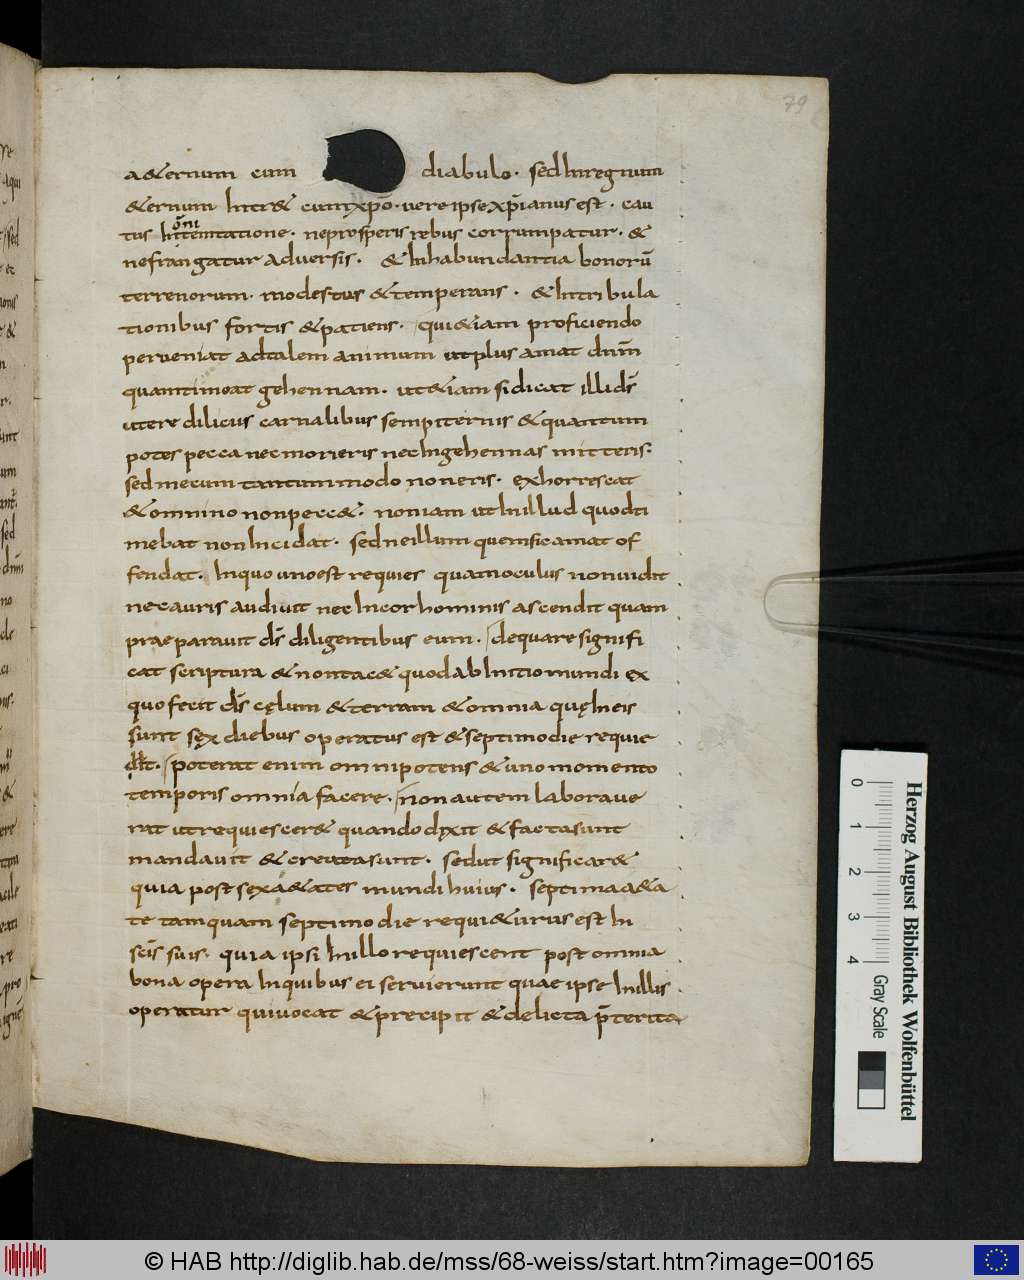 79
a&ernum cum diabulo. sed In regnum
&ernum Intr& cum xp̄o. uere ipse xp̄ianus est. cau
tus In omni temtatione. ne prosperis rebus corrumpatur. &
ne frangatur aduersis. & In habundantia bonorū
terrenorum. modestus & temperans. & In tribula
tionibus fortis & patiens. qui &iam proficiendo
perueniat ad talem animum ut plus amat dn̄m
quam timeat gehennam. ut &iam si dicat illi ds̄
utere diliciis carnalibus sempiternis & quantum
potes pecca nec morieris nec In gehennas mitteris.
sed mecum tantum modo non eris. exhorrescat
& omnino non pecc&. non iam ut In illud quod ti
mebat non Incidat. sed ne illum quem sic amat of
fendat. In quo uno est requies quam oculus non uidit
nec auris audiuit nec In cor hominis ascendit quam
praeparauit ds̄ diligentibus eum. de qua re signifi
cat scriptura & non tac& quod ab Initio mundi ex
quo fecit ds̄ cęlum & terram & omnia quę In eis
sunt sęx diebus operatus est & septimo die requie
uit. poterat enim omnipotens & uno momento
temporis omnia facere. non autem laboraue
rat ut requiescer& quando dixit & facta sunt
mandauit & creata sunt. sed ut significar&
quia post sęx a&ates mundi huius. septima a&a
te tamquam septimo die requi&urus est In
scīs suis. quia ipsi In illo requiescent post omnia
bona opera In quibus ei seruierunt quae ipse In illis
operatur qui uocat & precipit & delicta p̄terita
Herzog August Bibliothek Wolfenbüttel
0 1 2 3 4
Gray Scale
© HAB http://diglib.hab.de/mss/68-weiss/start.htm?image=00165